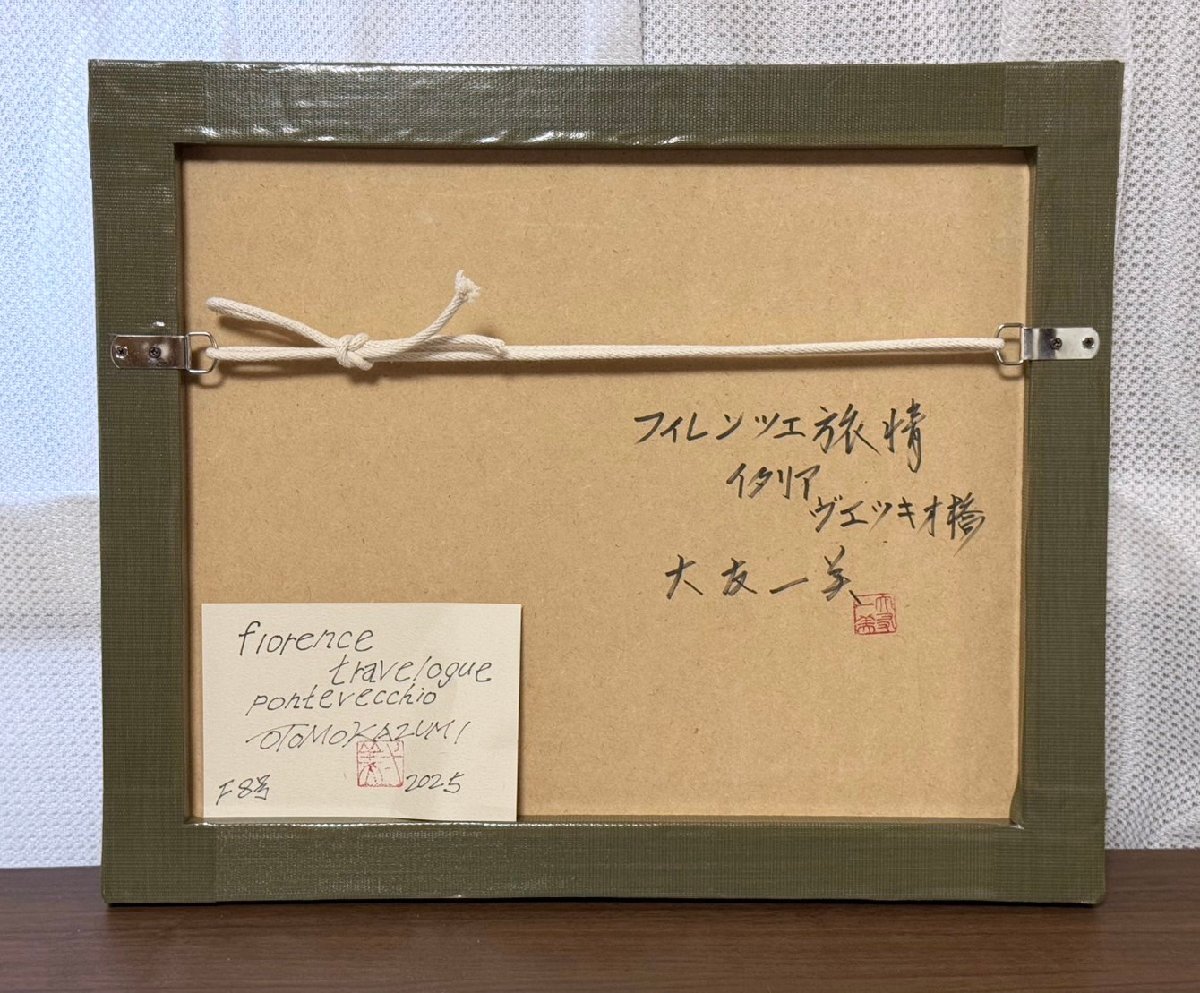 フィレンツェ旅情
イタリア
ヴェッキオ橋
大友一美
大友
一美
florence
travelogue
pontevecchio
OTOMOKAZUMI
F8号
2025